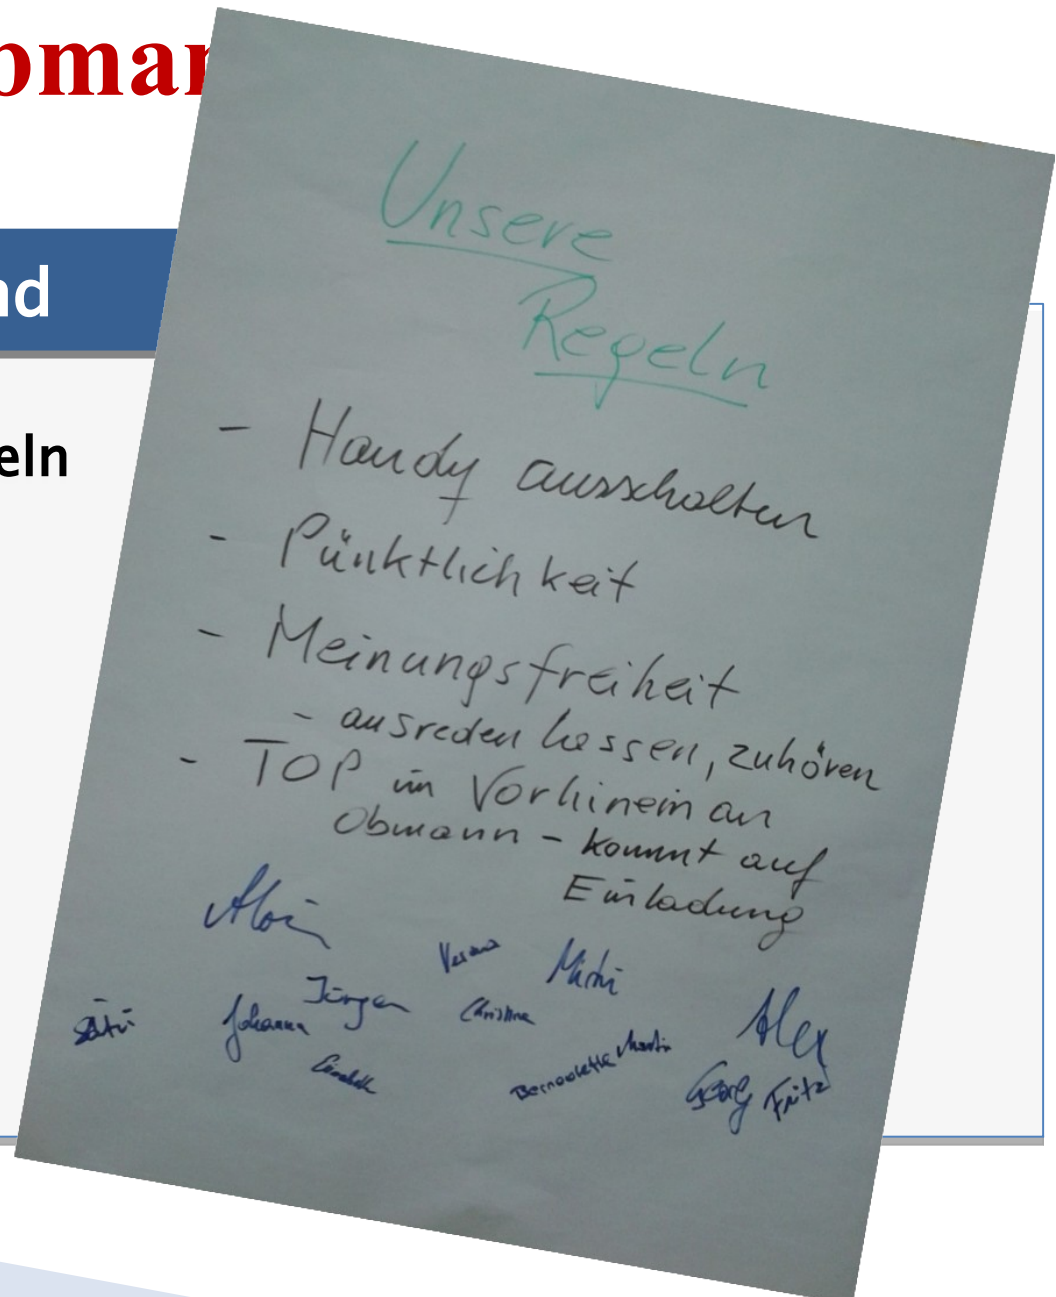 Unsere
Regeln
- Handy ausschalten
- Pünktlichkeit
- Meinungsfreiheit
- ausreden lassen, zuhören
- TOP im Vorhinein an
Obmann - kommt auf
Einladung
Alois
Verena Michi
Jürgen Christina Alex
Johanna Martin
Elisabeth Bernadette Georg Fritz
nd
eln